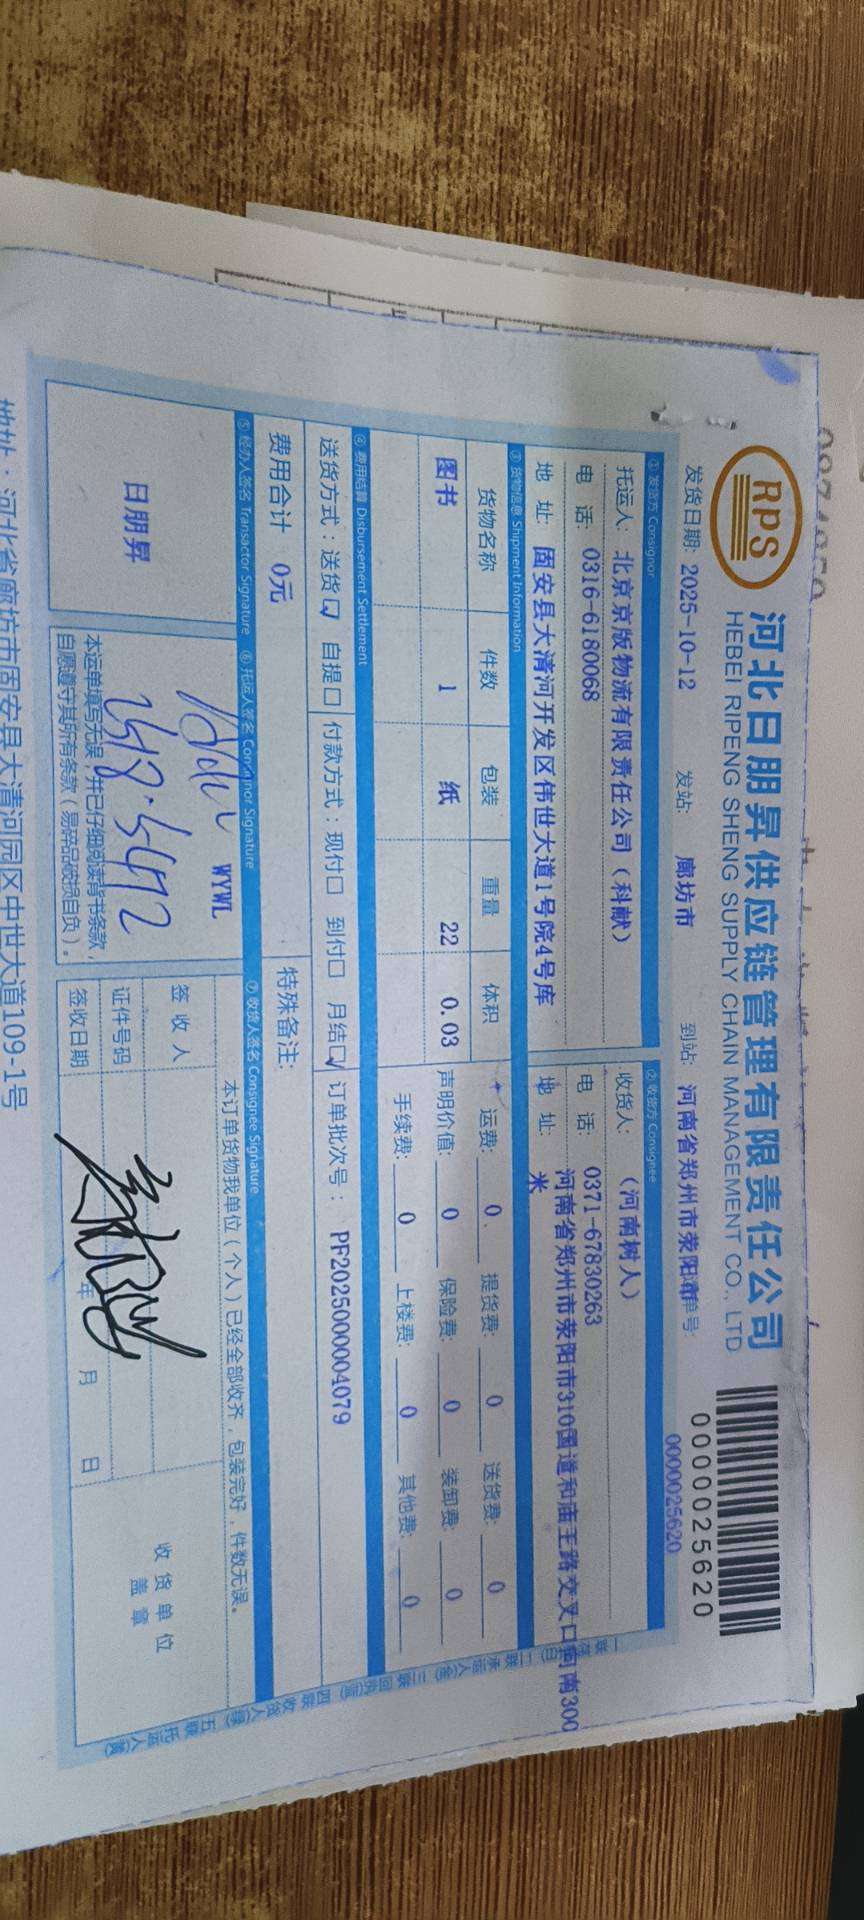 RPS
河北日朋昇供应链管理有限责任公司
HEBEI RIPENG SHENG SUPPLY CHAIN MANAGEMENT CO., LTD
0000025620
发货日期: 2025-10-12 发站: 廊坊市 到站: 河南省郑州市荥阳市 单号 0000025620
① 发货方 Consignor
② 收货方 Consignee
托运人: 北京京版物流有限责任公司（科献）
收货人: （河南树人）
电 话: 0316-6180068
电 话: 0371-67830263
地 址: 固安县大清河开发区伟世大道1号院4号库
地 址: 河南省郑州市荥阳市310国道和庙王路交叉口向南300
米
③ 货物信息 Shipment Information
货物名称 件数 包装 重量 体积
图书 1 纸 22 0.03
运费: 0 提货费: 0 送货费: 0
声明价值: 0 保险费: 0 装卸费: 0
手续费: 0 上楼费: 0 其他费: 0
④ 费用结算 Disbursement Settlement
送货方式: 送货☑ 自提□ 付款方式: 现付□ 到付□ 月结☑ 订单批次号: PF2025000004079
费用合计 0元
特殊备注:
⑤ 经办人签名 Transactor Signature
⑥ 托运人签名 Consignor Signature
⑦ 收货人签名 Consignee Signature
日朋昇
WYWL
本运单填写无误，并已仔细阅读背书条款，
自愿遵守其所有条款（易碎品破损自负）。
本订单货物我单位（个人）已经全部收齐，包装完好，件数无误。
签 收 人
证件号码
签收日期 年 月 日
收货单位
盖章
地址：河北省廊坊市固安县大清河园区中世大道109-1号